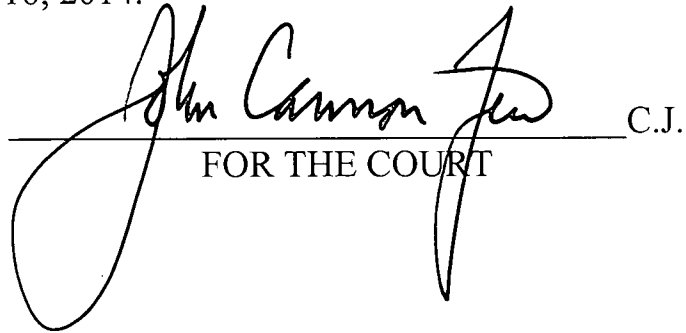 16, 2014.
John Cannon Few C.J.
FOR THE COURT